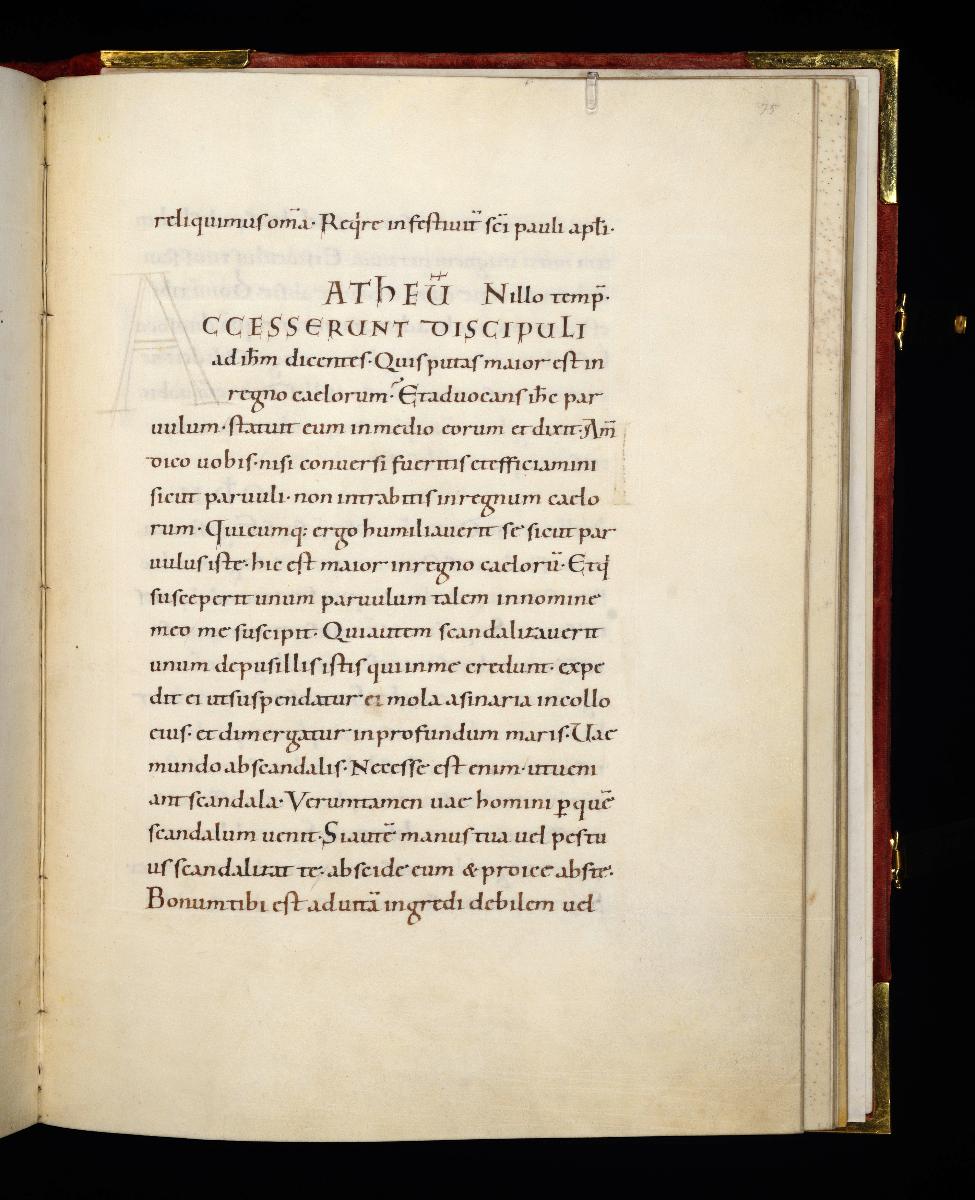 75
reliquimus om̄a· Reqͥre in festiuit̄ sc̄i pauli apłi·
ATHEŪ Nillo temp̄·
A CCESSERUNT DISCIPULI
ad ihm̄ dicentes· Quis putas maior est in
regno caelorum· Et aduocans ihc̄ par
uulum· statuit eum in medio eorum et dixit· Am̄
dico uobis· nisi conuersi fueritis et efficiamini
sicut paruuli· non intrabitis in regnum caelo
rum· Quicumq; ergo humiliauerit se sicut par
uulus iste· hic est maior in regno caelorū· Et qͥ
susceperit unum paruulum talem in nomine
meo me suscipit· Qui autem scandalizauerit
unum de pusillis istis qui in me credunt· expe
dit ei ut suspendatur ei mola asinaria in collo
eius· et dimergatur in profundum maris· Uae
mundo ab scandalis· Necesse est enim· ut ueni
ant scandala· Veruntamen uae homini ꝑ quē
scandalum uenit· Si autē manus tua uel pes tu
us scandalizat te· abscide eum & proice abs te·
Bonum tibi est ad uitā ingredi debilem uel